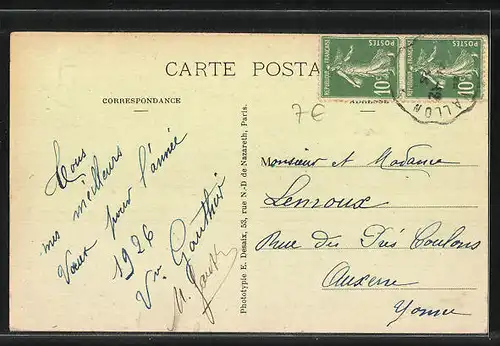 CARTE POSTA
REPUBLIQUE FRANÇAISE
POSTES
10c
REPUBLIQUE FRANÇAISE
POSTES
10c
ALLON
7€
CORRESPONDANCE
ADRESSE
Tous
mes meilleurs
Vœux pour l'année
1926
Vve Gauthier
M. 
Phototypie E. Desaix, 53, rue N.-D de Nazareth, Paris.
Monsieur et Madame
Lemoux
Rue des Prés Coulons
Auxerre
Yonne